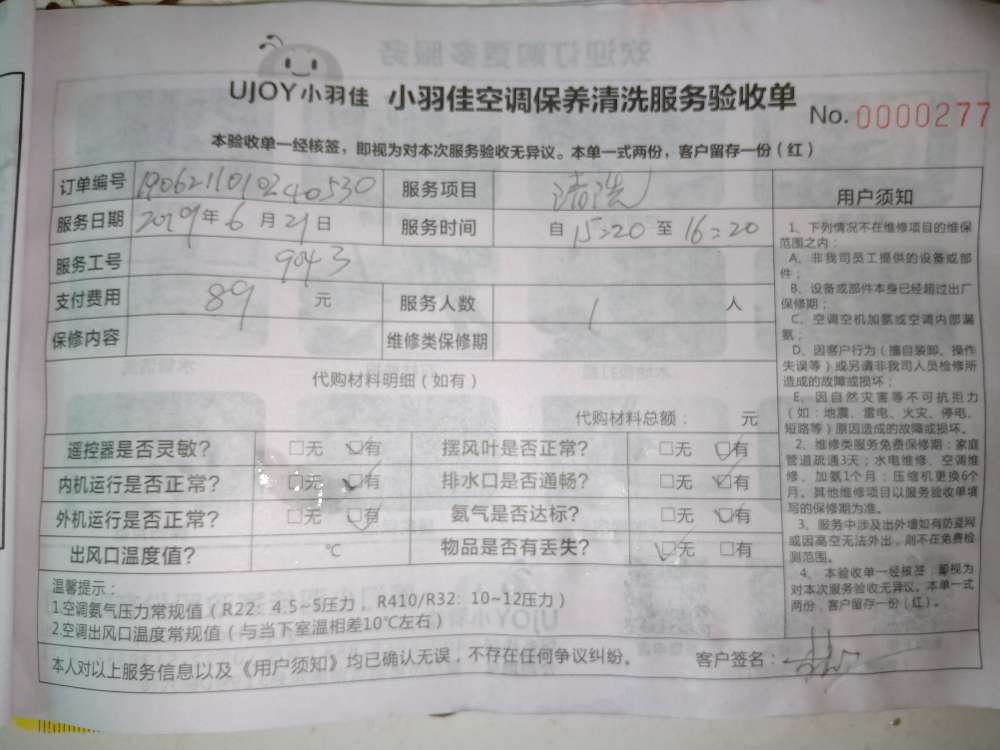 UJOY小羽佳 小羽佳空调保养清洗服务验收单
No. 0000277
本验收单一经核签，即视为对本次服务验收无异议。本单一式两份，客户留存一份（红）
订单编号 1906211010240530 服务项目 清洗
服务日期 2019年6月21日 服务时间 自 15:20 至 16:20
服务工号 9043
支付费用 89 元 服务人数 1 人
保修内容 维修类保修期
代购材料明细（如有）
代购材料总额： 元
遥控器是否灵敏？ □无 □有 摆风叶是否正常？ □无 □有
内机运行是否正常？ □无 □有 排水口是否通畅？ □无 □有
外机运行是否正常？ □无 □有 氨气是否达标？ □无 □有
出风口温度值？ ℃ 物品是否有丢失？ □无 □有
温馨提示：
1.空调氨气压力常规值（R22：4.5~5压力，R410/R32：10~12压力）
2.空调出风口温度常规值（与当下室温相差10℃左右）
本人对以上服务信息以及《用户须知》均已确认无误，不存在任何争议纠纷。 客户签名：
用户须知
1、下列情况不在维修项目的维保
范围之内：
A、非我司员工提供的设备或部
件；
B、设备或部件本身已经超过出厂
保修期；
C、空调空机加氨或空调内部漏
氨；
D、因客户行为（擅自装卸、操作
失误等）或另请非我司人员检修所
造成的故障或损坏；
E、因自然灾害等不可抗拒力
（如：地震、雷电、火灾、停电、
短路等）原因造成的故障或损坏。
2、维修类服务免费保修期：家庭
管道疏通3天；水电维修、空调维
修、加氨1个月；压缩机更换6个
月。其他维修项目以服务验收单填
写的保修期为准。
3、服务中涉及出外墙如有防盗网
或因高空无法外出，则不在免费检
测范围。
4、本验收单一经核签，即视为
对本次服务验收无异议。本单一式
两份，客户留存一份（红）。
欢迎订购更多服务